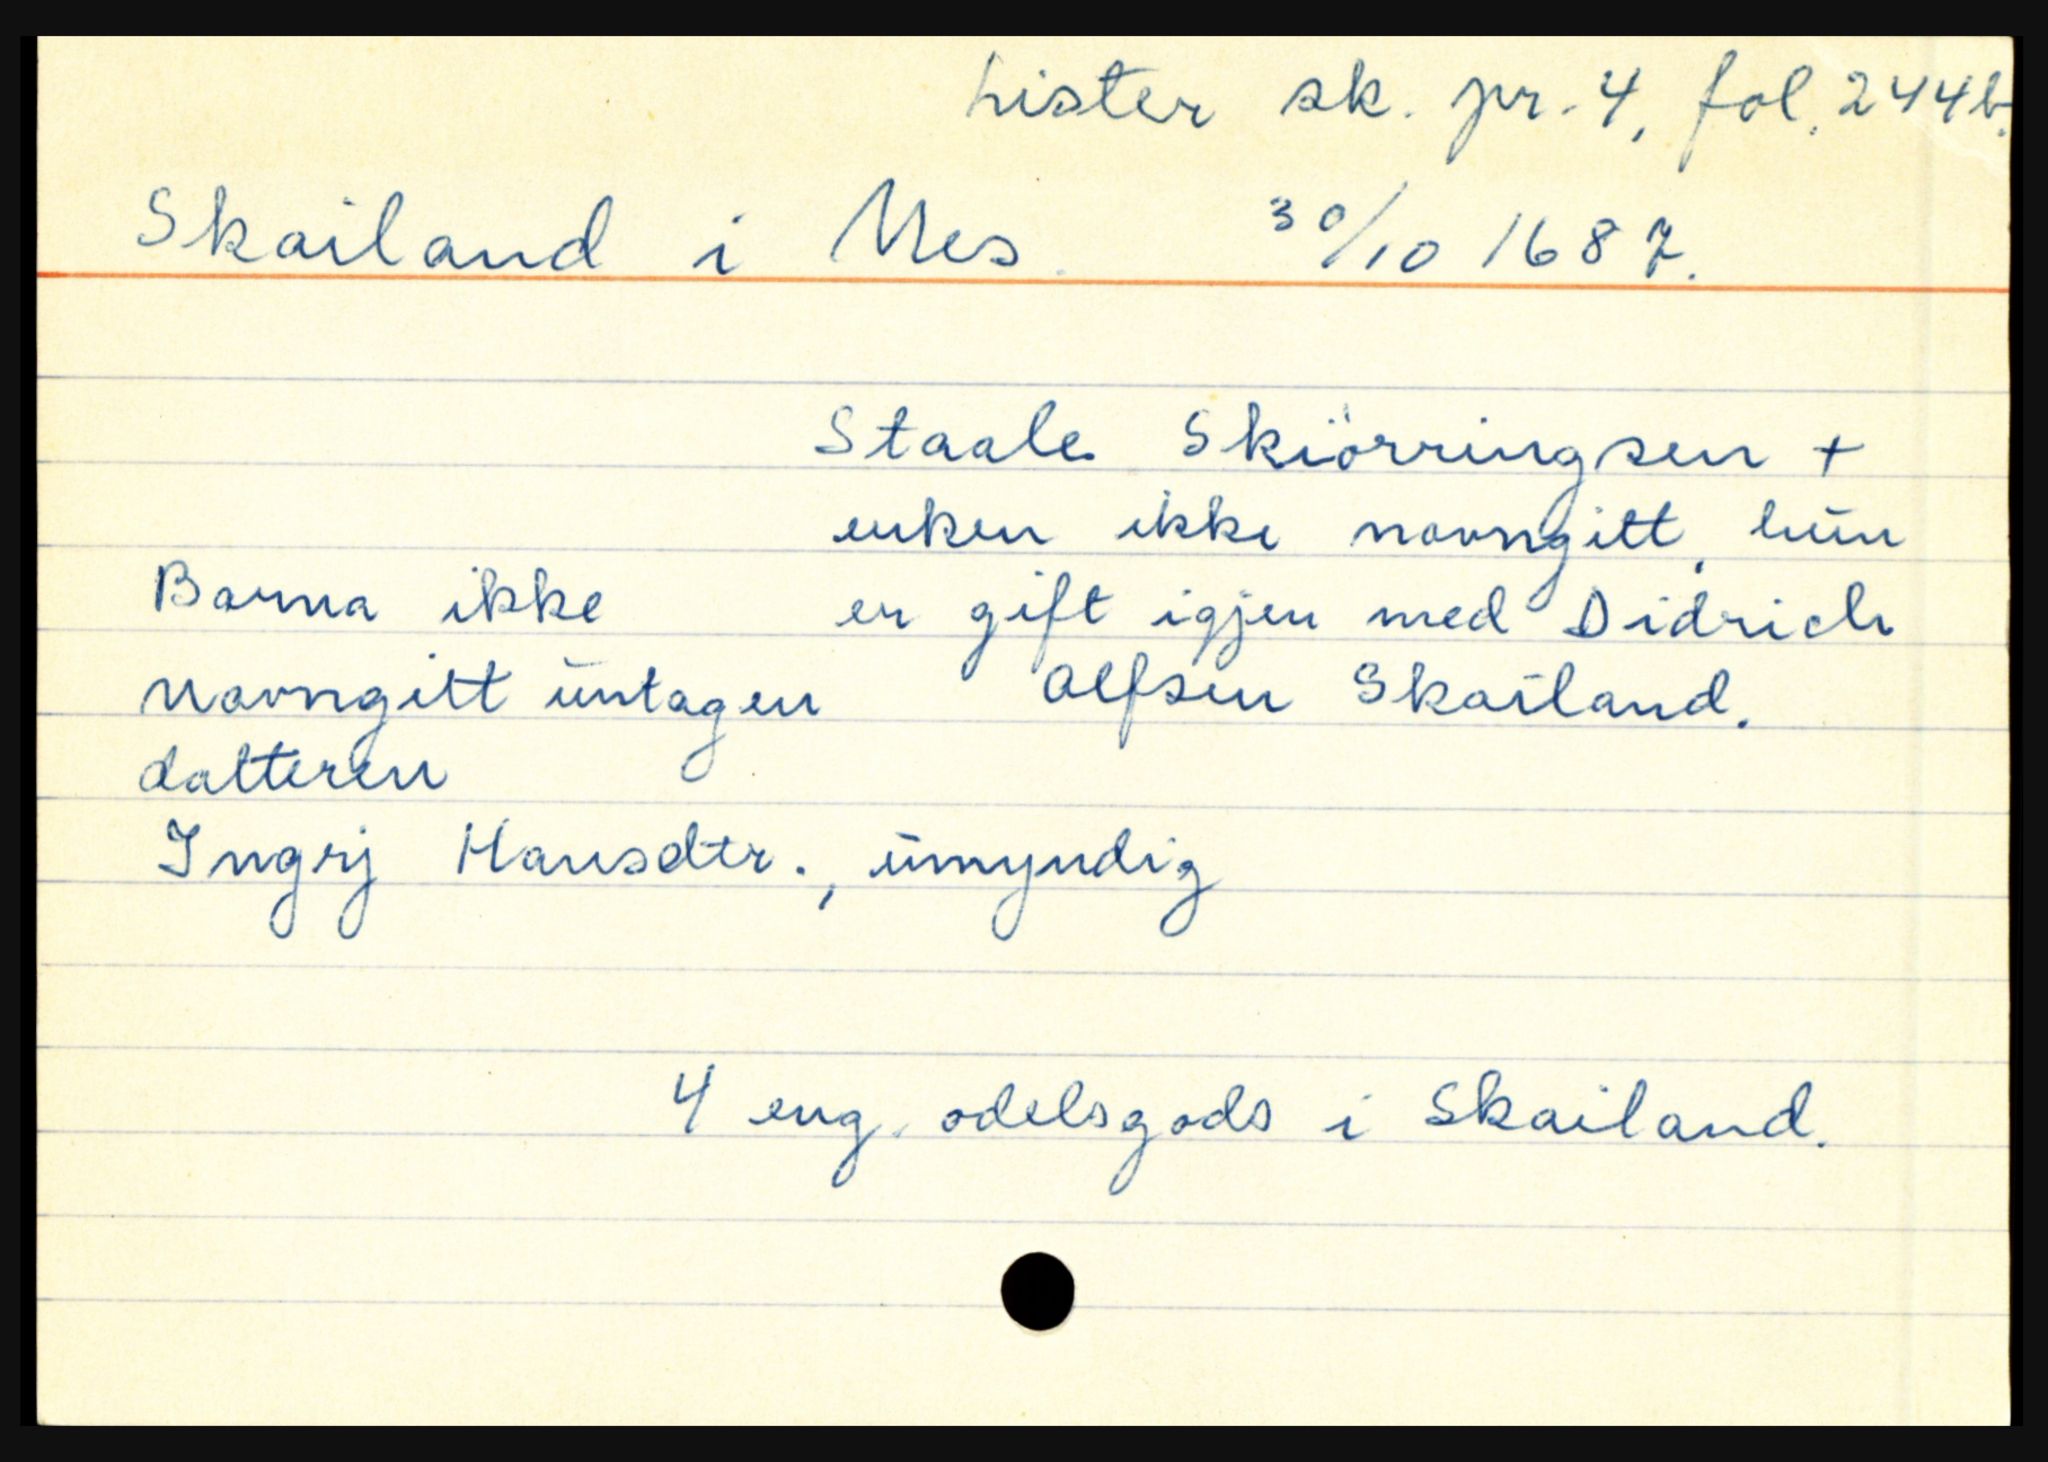 Lister sk. pr. 4, fol. 244b.
Skailand i Nes. 30/10 1687.
Staale Skiörringsen +
enken ikke navngitt, hun
Barna ikke er gift igjen med Didrich
navngitt untagen Alfsen Skailand.
datteren
Ingrj Hansdtr., umyndig
4 eng. odelsgods i Skailand.